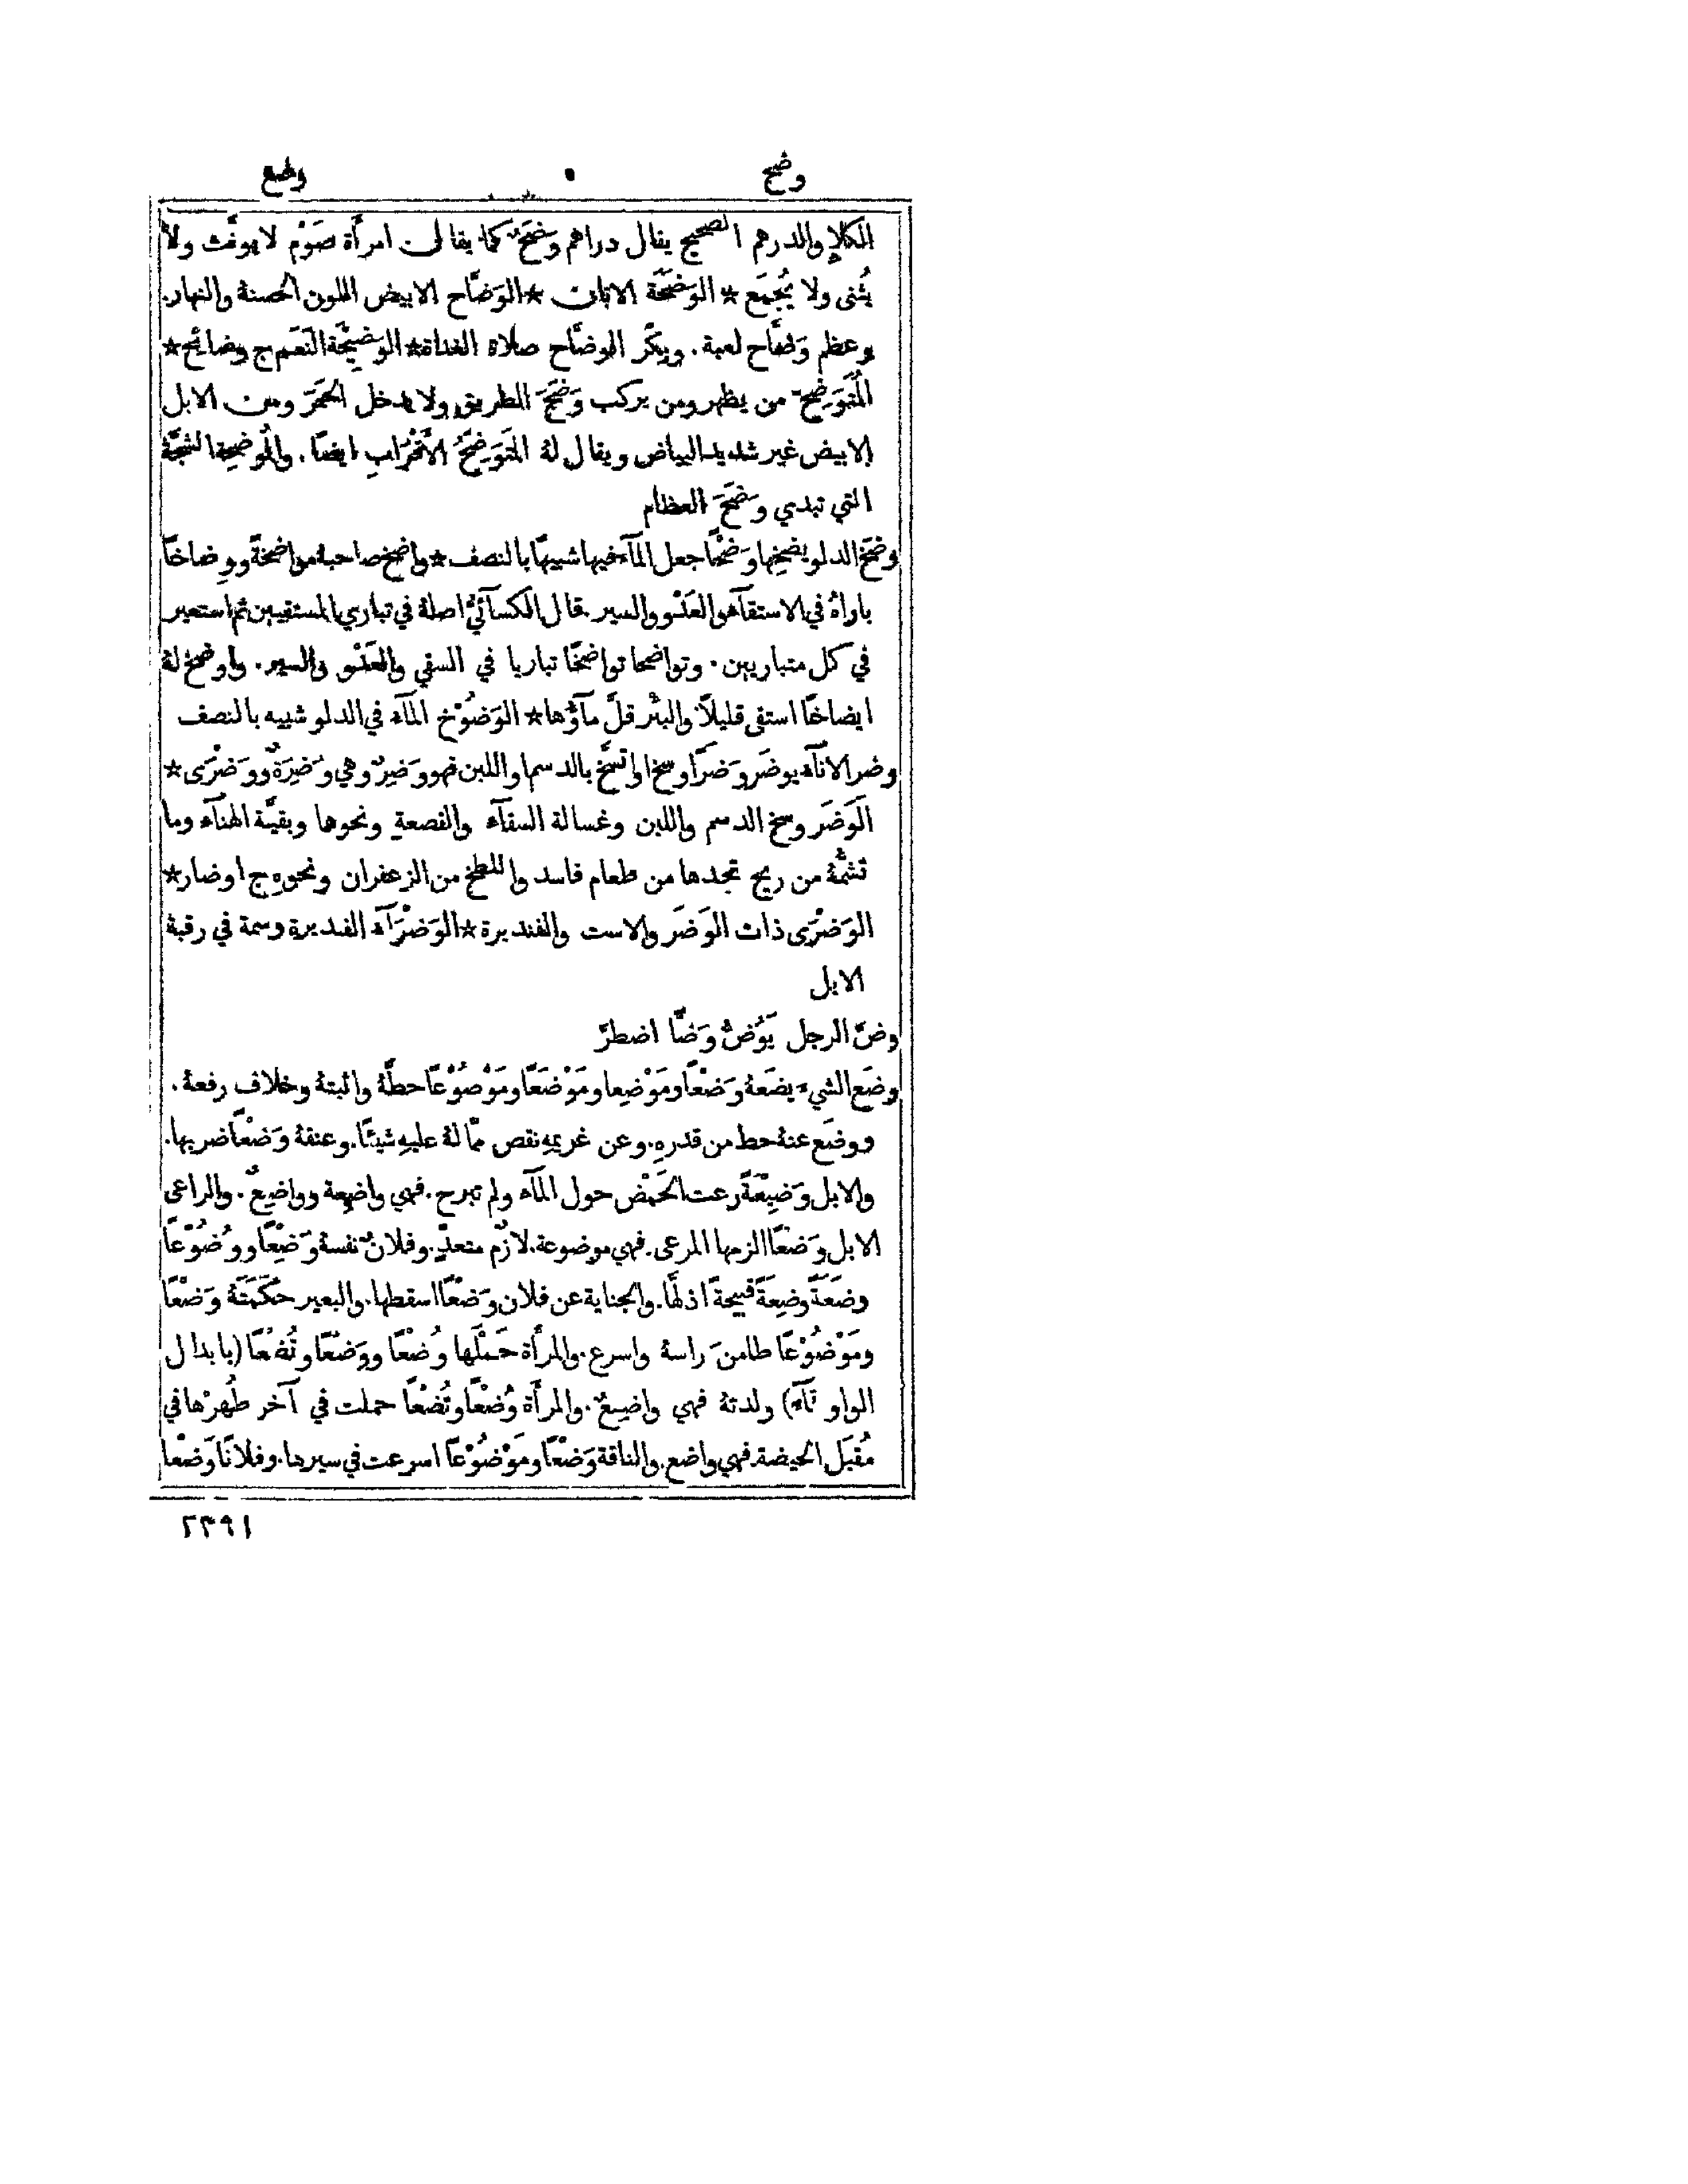 وضح
وضع
الكلإ والدرهم الصحيح يقال دراهم وَضَحٌ كما يقال امرأَة صَوْم لا يونَّث ولا
يُثنى ولا يُجمَع ★ الوَضَحَة الاتان ★ الوَضَّاح الابيض اللون الحسنة والنهار.
وعظم وَضَّاح لعبة. وبِكْر الوضَّاح صلاة الغداة ★ الوَضِيْحَة النَّعَم ج وضائح ★
المُتَوَضِّح من يظهر ومن يركب وَضَحَ الطريق ولا يدخل الخَمَرَ ومن الابل
الابيض غير شديد البياض ويقال لهُ المُتَوَضِّحُ الأَقْرَابِ ايضًا. والمُوضِحة الشجَّة
التي تبدي وَضَحَ العظام
وضَخَ الدلو يضخها وَضْخًا جعل المآءَ فيها شبيهًا بالنصف ★ واضخ صاحبهُ مواضخةً ووِضاخًا
باراهُ في الاستقآءِ والعَدْو والسير. قال الكسآئيُّ اصلهُ في تباري المستقيين ثم استعير
في كل متباريين. وتواضخا تواضخًا تباريا في السقي والعَدْو والسير. واوضخ لهُ
ايضاخًا استقى قليلًا والبئر قلَّ مآؤُها ★ الوَضُوْخ المآءُ في الدلو شبيه بالنصف
وضر الانآءُ يوضَر وَضَرًا وسخ او اتَّسخ بالدسم او اللبن فهو وَضِرٌ وهي وَضِرَةٌ ووَضْرَى ★
الوَضَر وسخ الدسم واللبن وغسالة السقآءِ والقصعة ونحوها وبقيَّة الهنآءِ وما
تشمُّهُ من ريح تجدها من طعام فاسد واللطخ من الزعفران ونحوهِ ج اوضار ★
الوَضْرَى ذات الوَضَر والاست والفنديرة ★ الوَضْرَآءُ الفنديرة وسمة في رقبة
الابل
وضَّ الرجل يَوُضُّ وَضًّا اضطرَّ
وضَع الشيءَ يضَعهُ وَضْعًا ومَوْضِعا ومَوْضَعًا ومَوْضُوْعًا حطَّهُ واثبتهُ وخلاف رفعهُ.
ووضَع عنهُ حط من قدرهِ. وعن غريمهِ نقص ممَّا لهُ عليهِ شيئًا. وعنقهُ وَضْعًا ضربها.
والابل وَضِيْعَةً رعت الحَمْض حول المآءِ ولم تبرح. فهي واضِعة وواضِعٌ. والراعي
الابل وَضْعًا الزمها المرعى. فهي موضوعة. لازمٌ متعدٍّ. وفلانٌ نفسهُ وَضْعًا ووُضُوْعًا
وضَعَةً وضِعَةً قبيحةً اذلَّها. والجناية عن فلان وَضْعًا اسقطها. والبعير حَكَمَتَهُ وَضْعًا
ومَوْضُوْعًا طامنَ راسهُ واسرع. والمرأَة حَمْلَها وُضْعًا ووَضْعًا وتُضْعًا (بابدال
الواو تآءً) ولدتهُ فهي واضِعٌ. والمرأَة وُضْعًا وتُضْعًا حملت في آخر طُهرْها في
مُقبَل الحيضة فهي واضع. والناقة وَضْعًا ومَوْضُوْعًا اسرعت في سيرها. وفلانًا وَضْعًا
٢٣٩١